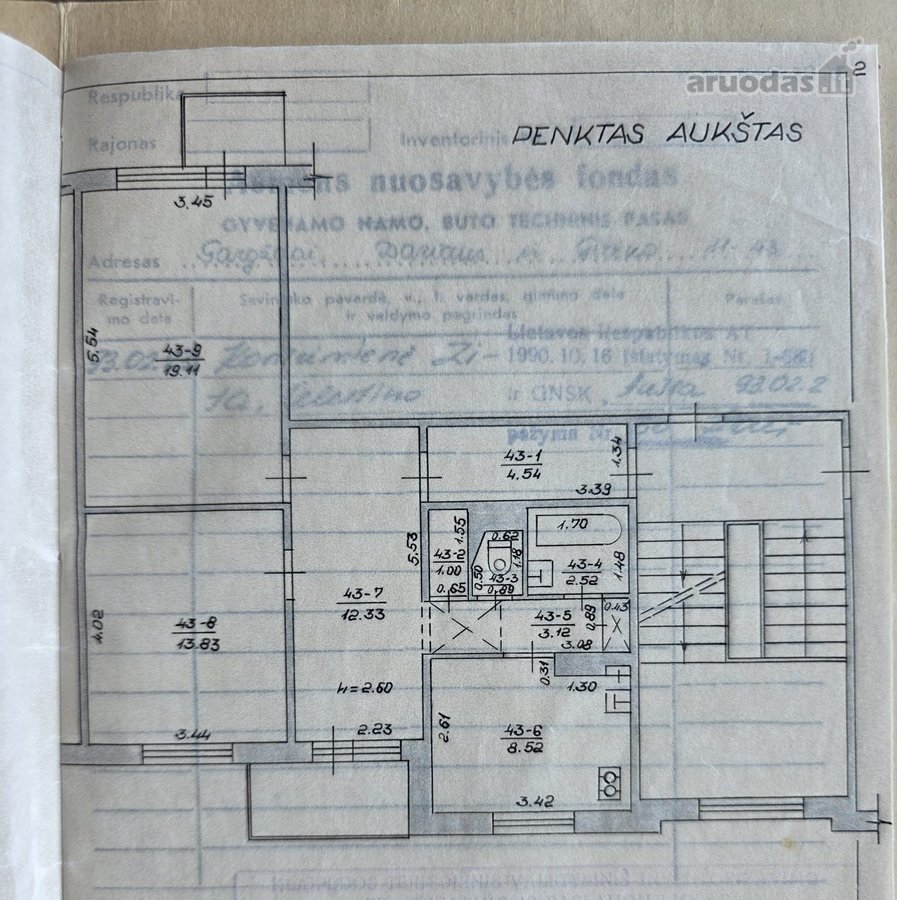 2
aruodas.lt
Respublika
PENKTAS AUKŠTAS
Rajonas
Inventorinis
Asmens nuosavybės fondas
3.45
GYVENAMO NAMO, BUTO TECHNINIS PASAS
Adresas
Registravi-
mo data
Savininko pavardė, v., t. vardas, gimimo data
ir valdymo pagrindas
Parašas
Lietavos Respublikos AT
5.54
43-9
19.11
1990.10.16
Nr.
ir GNSK
93.02.2
pažyma Nr.
43-1
4.54
1.34
3.39
1.70
1.55
0.62
1.18
5.53
43-2
1.00
0.65
0.50
43-3
0.89
43-4
2.52
1.48
43-7
12.33
43-5
3.12
3.08
0.89
0.43
4.02
43-8
13.83
h=2.60
0.31
1.30
3.44
2.23
2.61
43-6
8.52
3.42